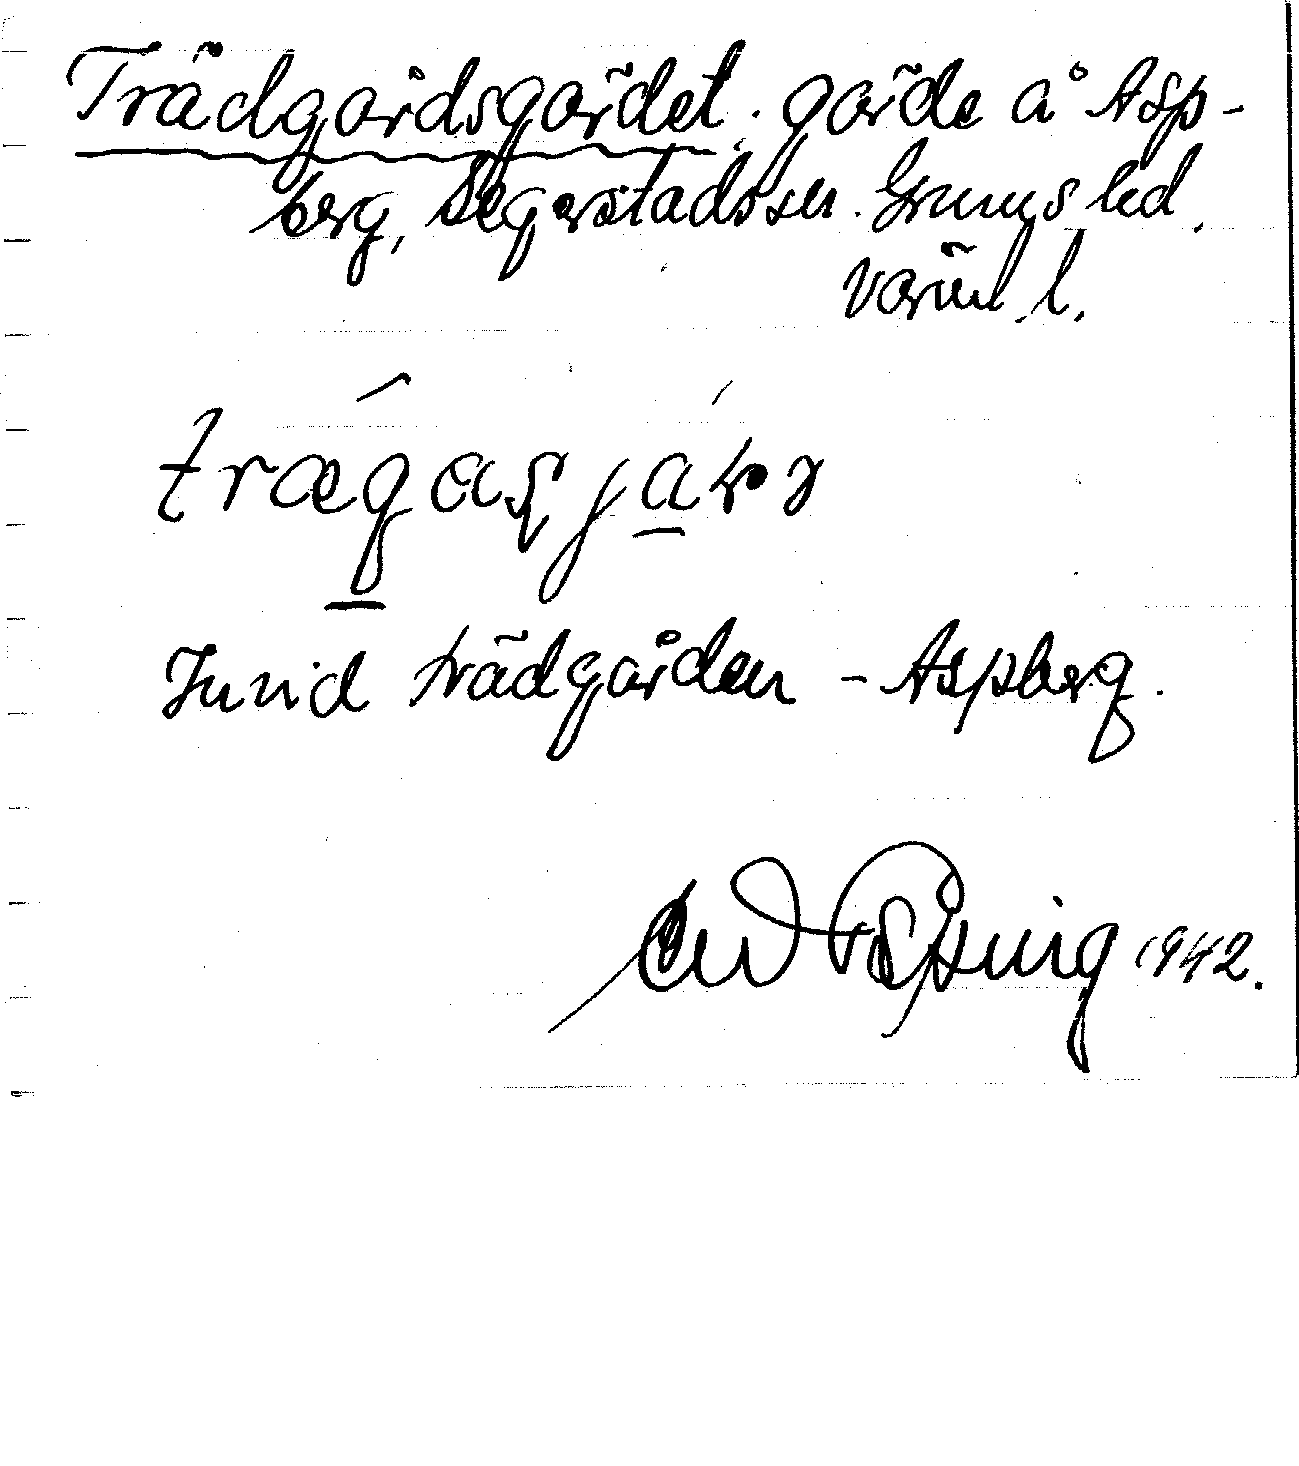 Trädgårdsgärdet, gärde å Asp-
berg, Segerstads sn. Grums hd,
Värml. l.
Invid trädgården - Aspberg.
1942.